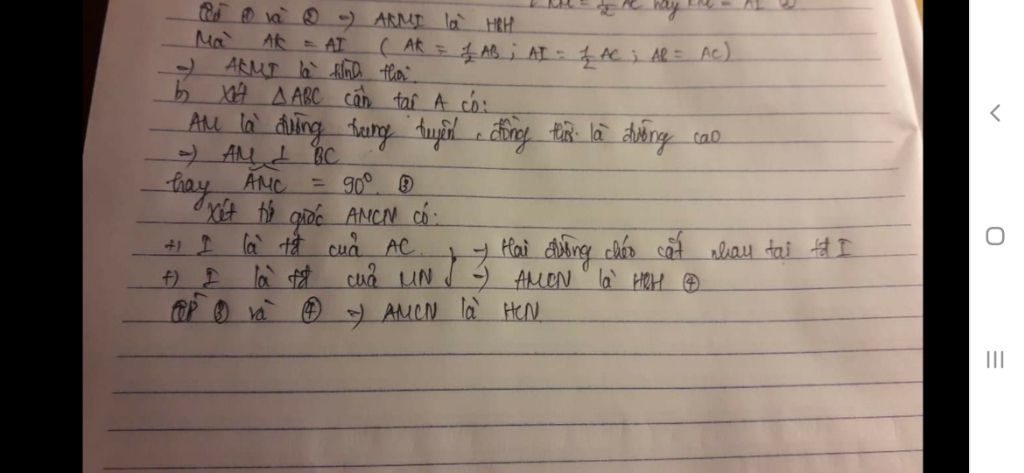 KM = 1/2 AC hay KM = AI ②
Từ ① và ② => AKMI là HBH
Mà AK = AI ( AK = 1/2 AB ; AI = 1/2 AC ; AB = AC)
=> AKMI là hình thoi.
b, Xét △ABC cân tại A có:
AM là đường trung tuyến, đồng thời là đường cao
=> AM ⊥ BC
hay AMC = 90°. ③
Xét tứ giác AMCN có:
+) I là tđ của AC. } => Hai đường chéo cắt nhau tại tđ I
+) I là tđ của MN } => AMCN là HBH ④
Từ ③ và ④ => AMCN là HCN